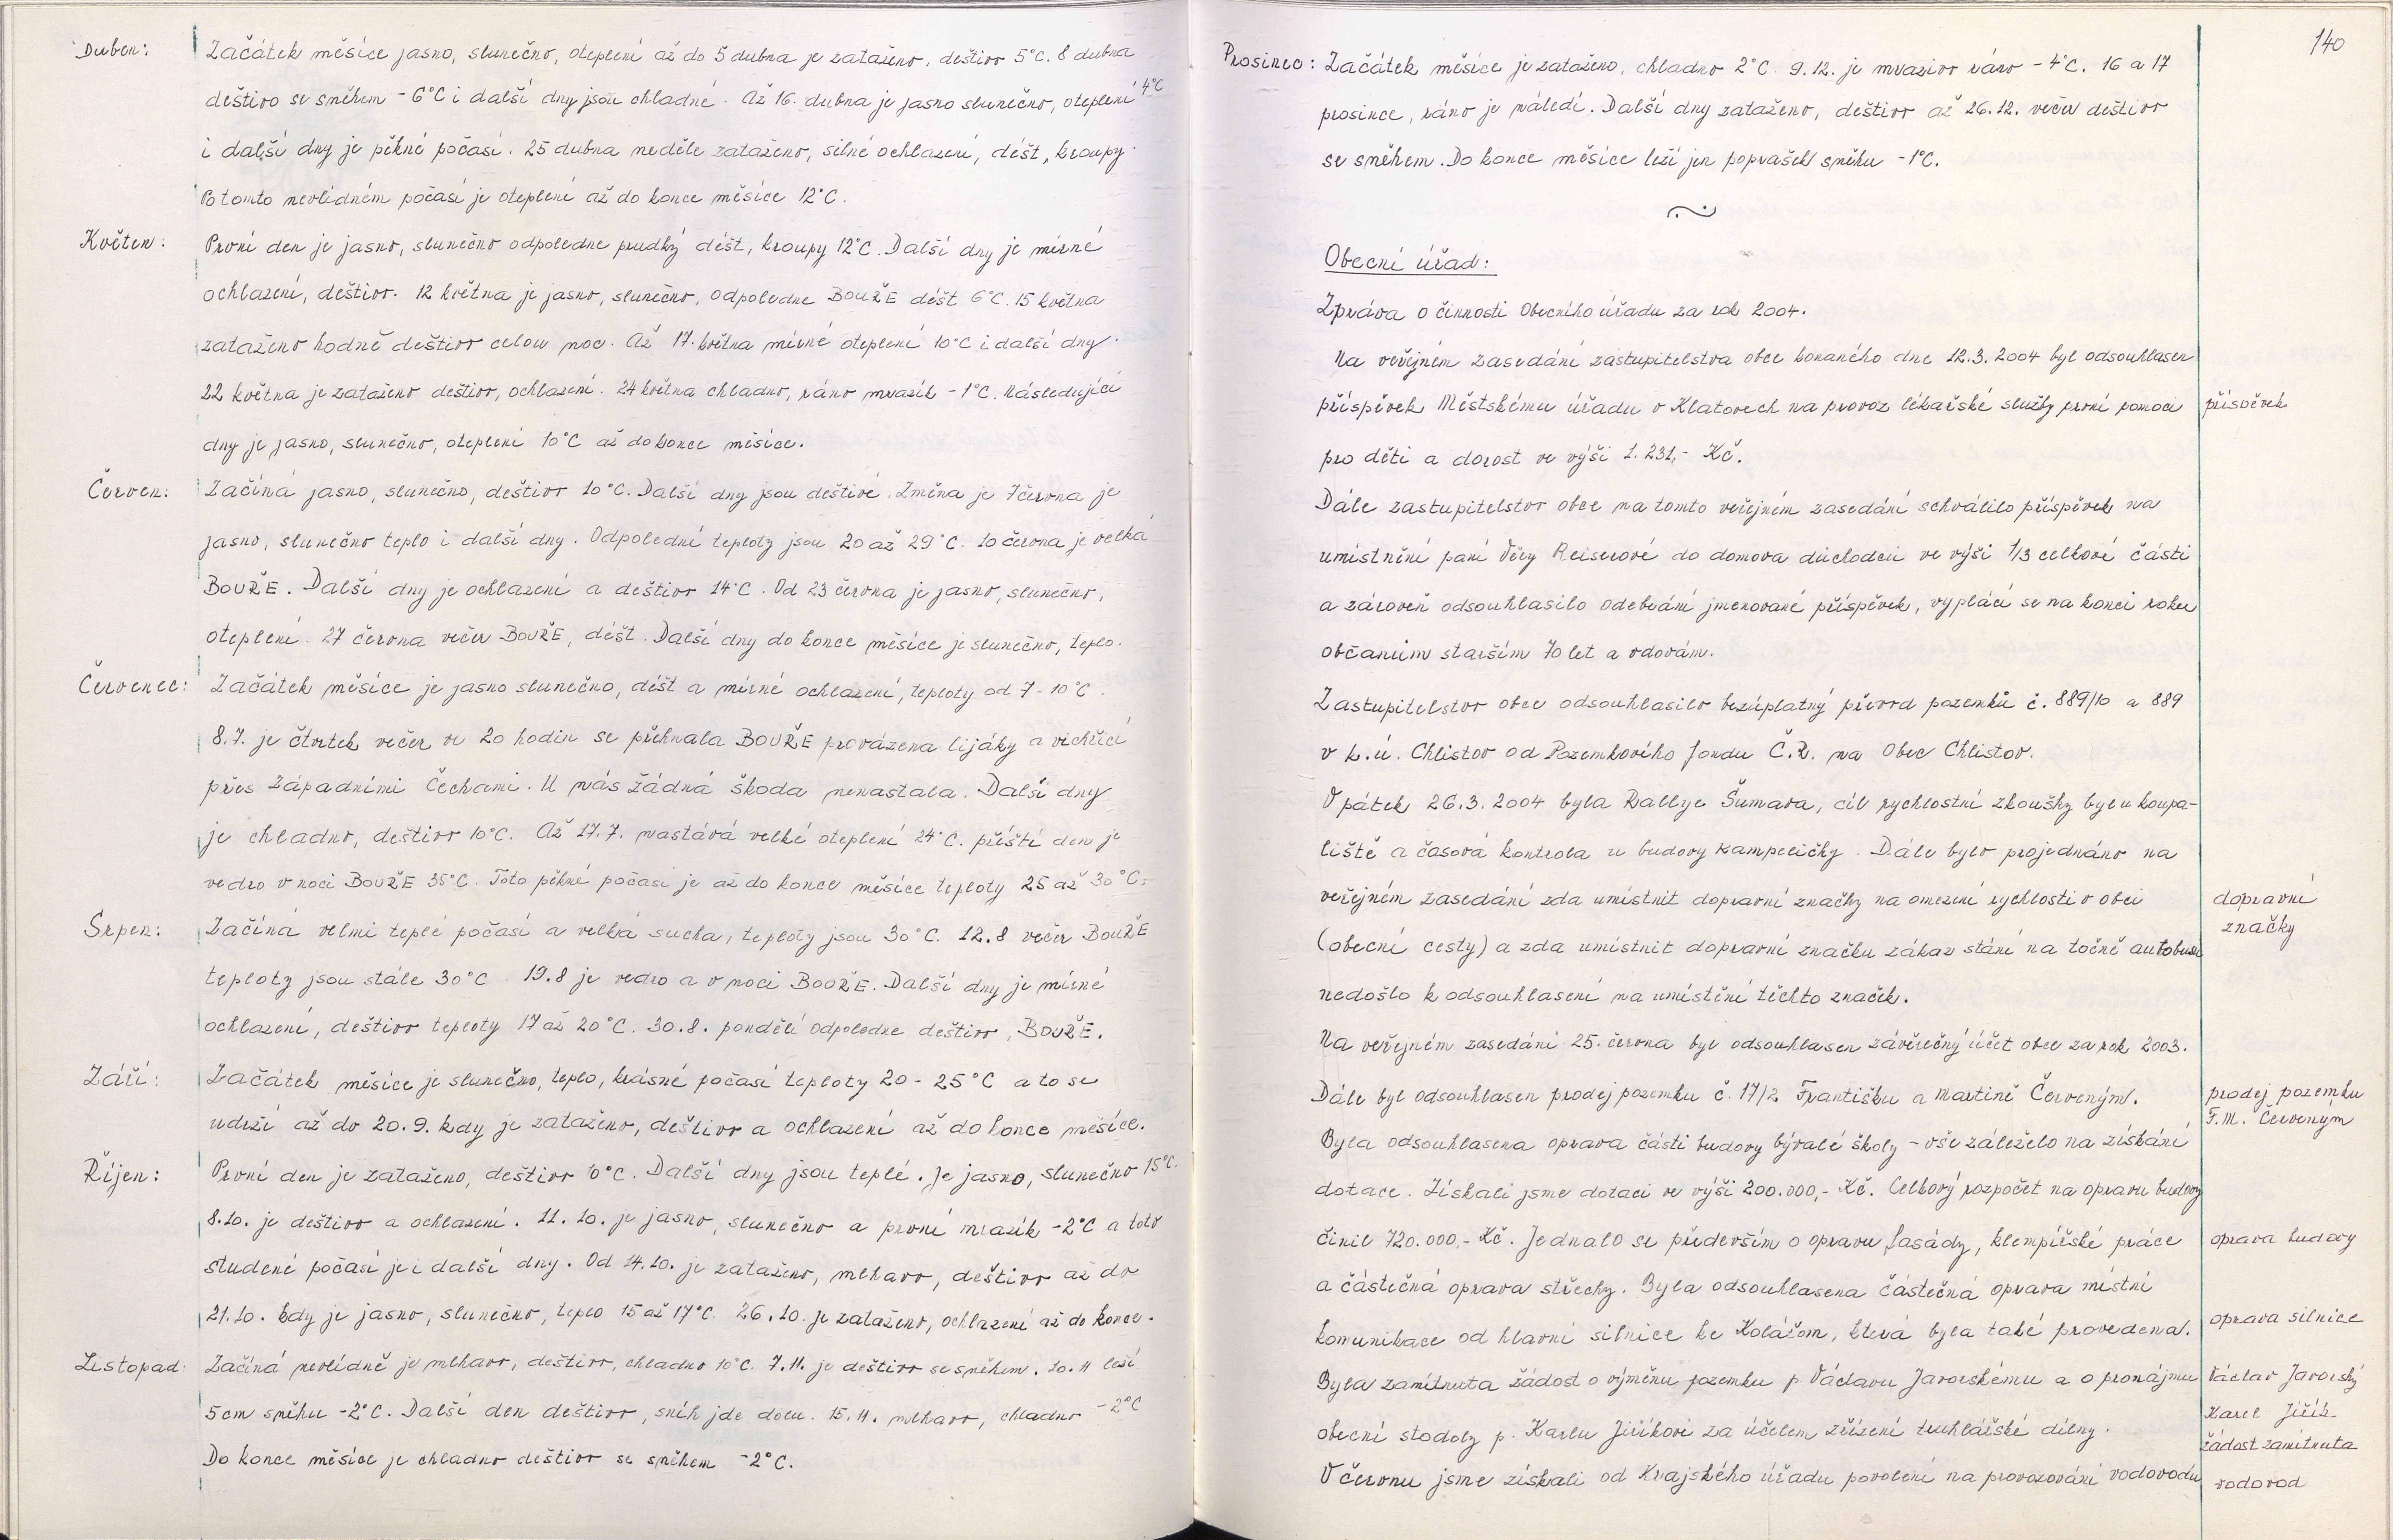 Duben: Začátek měsíce jasno, slunečno, oteplení až do 5 dubna je zataženo, deštivo 5°C. 8 dubna
deštivo se sněhem -6°C i další dny jsou chladné. Až 16. dubna je jasno slunečno, oteplení 4°C
i další dny je pěkné počasí. 25 dubna neděle zataženo, silné ochlazení, déšt, kroupy.
Po tomto nevlídném počasí je oteplení až do konce měsíce 12°C.
Květen: První den je jasno, slunečno odpoledne prudký déšt, kroupy 12°C. Další dny je mírné
ochlazení, deštivo. 12 května je jasno, slunečno, odpoledne BOUŘE déšt 6°C. 15 května
zataženo hodně deštivo celou noc. Až 17. května mírné oteplení 10°C i další dny.
22 května je zataženo deštivo, ochlazení. 24 května chladno, ráno mrazík -1°C. Následující
dny je jasno, slunečno, oteplení 10°C až do konce měsíce.
Červen: Začíná jasno, slunečno, deštivo 10°C. Další dny jsou deštivé. Změna je 7 června je
jasno, slunečno teplo i další dny. Odpolední teploty jsou 20 až 29°C. 10 června je velká
BOUŘE. Další dny je ochlazení a deštivo 14°C. Od 23 června je jasno, slunečno,
oteplení. 27 června večer BOUŘE, déšt. Další dny do konce měsíce je slunečno, teplo.
Červenec: Začátek měsíce je jasno slunečno, déšt a mírné ochlazení, teploty od 7-10°C.
8.7. je čtvrtek večer ve 20 hodin se přehnala BOUŘE provázena lijáky a vichřicí
přes Západními Čechami. U nás žádná škoda nenastala. Další dny
je chladno, deštivo 10°C. Až 17.7. nastává velké oteplení 24°C. příští den je
vedro v noci BOUŘE 35°C. Toto pěkné počasí je až do konce měsíce teploty 25 až 30°C.
Srpen: Začíná velmi teplé počasí a velká sucha, teploty jsou 30°C. 12.8 večer BOUŘE
teploty jsou stále 30°C. 19.8 je vedro a v noci BOUŘE. Další dny je mírné
ochlazení, deštivo teploty 17 až 20°C. 30.8. pondělí odpoledne deštivo, BOUŘE.
Září: Začátek měsíce je slunečno, teplo, krásné počasí teploty 20-25°C a to se
udrží až do 20.9. kdy je zataženo, deštivo a ochlazení až do konce měsíce.
Říjen: První den je zataženo, deštivo 10°C. Další dny jsou teplé. Je jasno, slunečno 15°C.
8.10. je deštivo a ochlazení. 11.10. je jasno, slunečno a první mrazík -2°C a toto
studené počasí je i další dny. Od 14.10. je zataženo, mlhavo, deštivo až do
21.10. kdy je jasno, slunečno, teplo 15 až 17°C. 26.10. je zataženo, ochlazení až do konce.
Listopad: Začíná nevlídně je mlhavo, deštivo, chladno 10°C. 7.11. je deštivo se sněhem. 10.11 leží
5cm sněhu -2°C. Další den deštivo, sníh jde dolu. 15.11. mlhavo, chladno -2°C
Do konce měsíce je chladno deštivo se sněhem -2°C.
140
Prosinec: Začátek měsíce je zataženo, chladno 2°C. 9.12. je mrazivo ráno -4°C. 16 a 17
prosince, ráno je náledí. Další dny zataženo, deštivo až 26.12. večer deštivo
se sněhem. Do konce měsíce leží jen poprašek sněhu -1°C.
Obecní úřad:
Zpráva o činnosti Obecního úřadu za rok 2004.
Na veřejném zasedání zastupitelstva obce konaného dne 12.3.2004 byl odsouhlasen
příspěvek Městskému úřadu v Klatovech na provoz lékařské služby první pomoci příspěvek
pro děti a dorost ve výši 1.231,- Kč.
Dále zastupitelstvo obce na tomto veřejném zasedání schválilo příspěvek na
umístnění paní Věry Reiserové do domova důchodců ve výši 1/3 celkové části
a zároveň odsouhlasilo odebrání jmenované příspěvek, vyplácí se na konci roku
občanům starším 70 let a vdovám.
Zastupitelstvo obce odsouhlasilo bezúplatný převod pozemků č. 889/10 a 889
v k.ú. Chlistov od Pozemkového fondu Č.R. na Obec Chlistov.
V pátek 26.3.2004 byla Rallye Šumava, cíl rychlostní zkoušky byl u koupa-
liště a časová kontrola u budovy kampeličky. Dále bylo projednáno na
veřejném zasedání zda umístnit dopravní značky na omezení rychlosti v obci dopravní
(obecní cesty) a zda umístnit dopravní značku zákaz stání na točně autobusu značky
nedošlo k odsouhlasení na umístění těchto značek.
Na veřejném zasedání 25. června byl odsouhlasen závěrečný účet obce za rok 2003.
Dále byl odsouhlasen prodej pozemku č. 17/2 Františku a Martině Červeným. prodej pozemku
F.M. Červeným
Byla odsouhlasena oprava části budovy bývalé školy - vše záleželo na získání
dotace. Získali jsme dotaci ve výši 200.000,- Kč. Celkový rozpočet na opravu budovy
činil 720.000,- Kč. Jednalo se především o opravu fasády, klempířské práce oprava budovy
a částečná oprava střechy. Byla odsouhlasena částečná oprava místní
komunikace od hlavní silnice ke Kolářom, která byla také provedena. oprava silnice
Byla zamítnuta žádost o výměnu pozemku p. Václavu Javorskému a o pronájmu Václav Javorský
Karel Jiřík
obecní stodoly p. Karlu Jiříkovi za účelem zřízení truhlářské dílny. žádost zamítnuta
V červnu jsme získali od Krajského úřadu povolení na provozování vodovodu vodovod